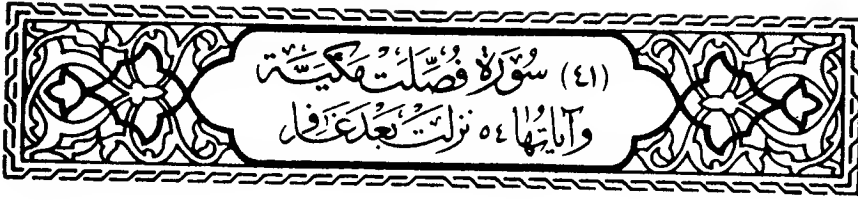 (٤١) سُورَةُ فُصِّلَتْ مَكِّيَّة
وَآيَاتُهَا ٥٤ نَزَلَتْ بَعْدَ غَافِر